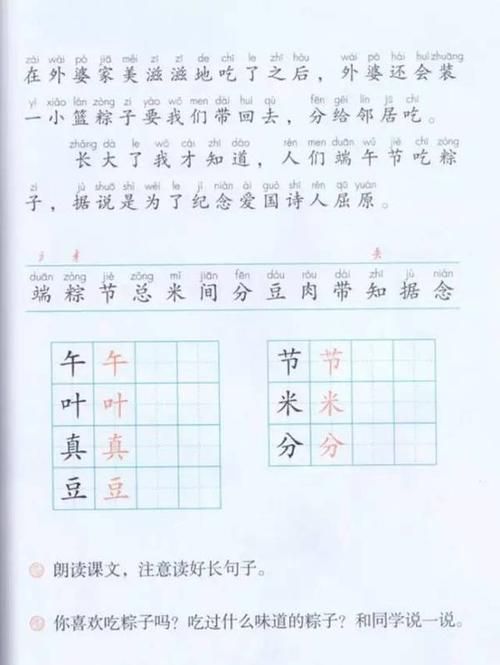 zài wài pó jiā měi zī zī de chī le zhī hòu wài pó hái huì zhuāng
在外婆家美滋滋地吃了之后，外婆还会装
yì xiǎo lán zòng zi yào wǒ men dài huí qù fēn gěi lín jū chī
一小篮粽子要我们带回去，分给邻居吃。
zhǎng dà le wǒ cái zhī dào rén men duān wǔ jié chī zòng
长大了我才知道，人们端午节吃粽
zi jù shuō shì wèi le jì niàn ài guó shī rén qū yuán
子，据说是为了纪念爱国诗人屈原。
duān zòng jié zǒng mǐ jiān fēn dòu ròu dài zhī jù niàn
端粽节总米间分豆肉带知据念
午午 节节
叶叶 米米
真真 分分
豆豆
朗读课文，注意读好长句子。
你喜欢吃粽子吗？吃过什么味道的粽子？和同学说一说。